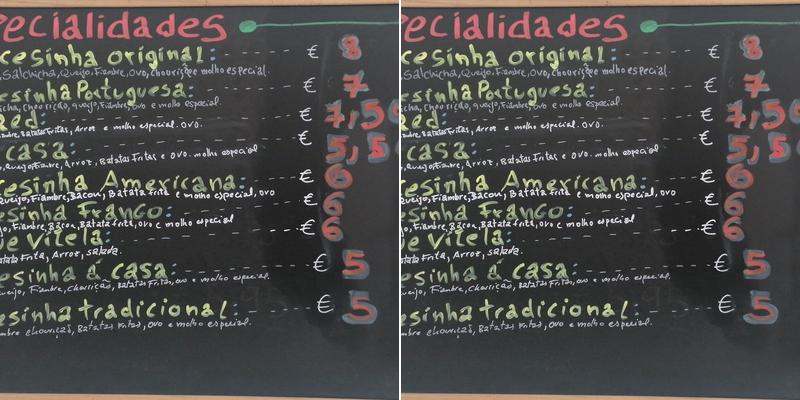 pecialidades
cesinha original: € 8
Salchicha, Queijo, Fiambre, Ovo, chouriço e molho especial.
esinha Portuguesa: € 7
cha, Chouriço, queijo, Fiambre, ovo e molho especial.
ed: € 7,5
Batatas Fritas, Arroz e molho especial. ovo.
casa: € 5,5
Queijo, Fiambre, Arroz, Batatas Fritas e ovo. molho especial
esinha Americana: € 6
Queijo, Fiambre, Bacon, Batata frita e molho especial, ovo
esinha Frango: € 6
jo, Fiambre, Bacon, Batata frita, ovo e molho especial
e vitela: € 6
tata Frita, Arroz, salada.
esinha à casa: € 5
ueijo, Fiambre, Chouriço, Batatas Fritas, ovo e molho especial.
esinha tradicional: € 5
mbre chouriças, Batatas Fritas, ovo e molho especial.
pecialidades
cesinha original: € 8
Salchicha, Queijo, Fiambre, Ovo, chouriço e molho especial.
esinha Portuguesa: € 7
cha, Chouriço, queijo, Fiambre, ovo e molho especial.
ed: € 7,5
Batatas Fritas, Arroz e molho especial. ovo.
casa: € 5,5
Queijo, Fiambre, Arroz, Batatas Fritas e ovo. molho especial
esinha Americana: € 6
Queijo, Fiambre, Bacon, Batata frita e molho especial, ovo
esinha Frango: € 6
jo, Fiambre, Bacon, Batata frita, ovo e molho especial
e vitela: € 6
tata Frita, Arroz, salada.
esinha à casa: € 5
ueijo, Fiambre, Chouriço, Batatas Fritas, ovo e molho especial.
esinha tradicional: € 5
mbre chouriças, Batatas Fritas, ovo e molho especial.